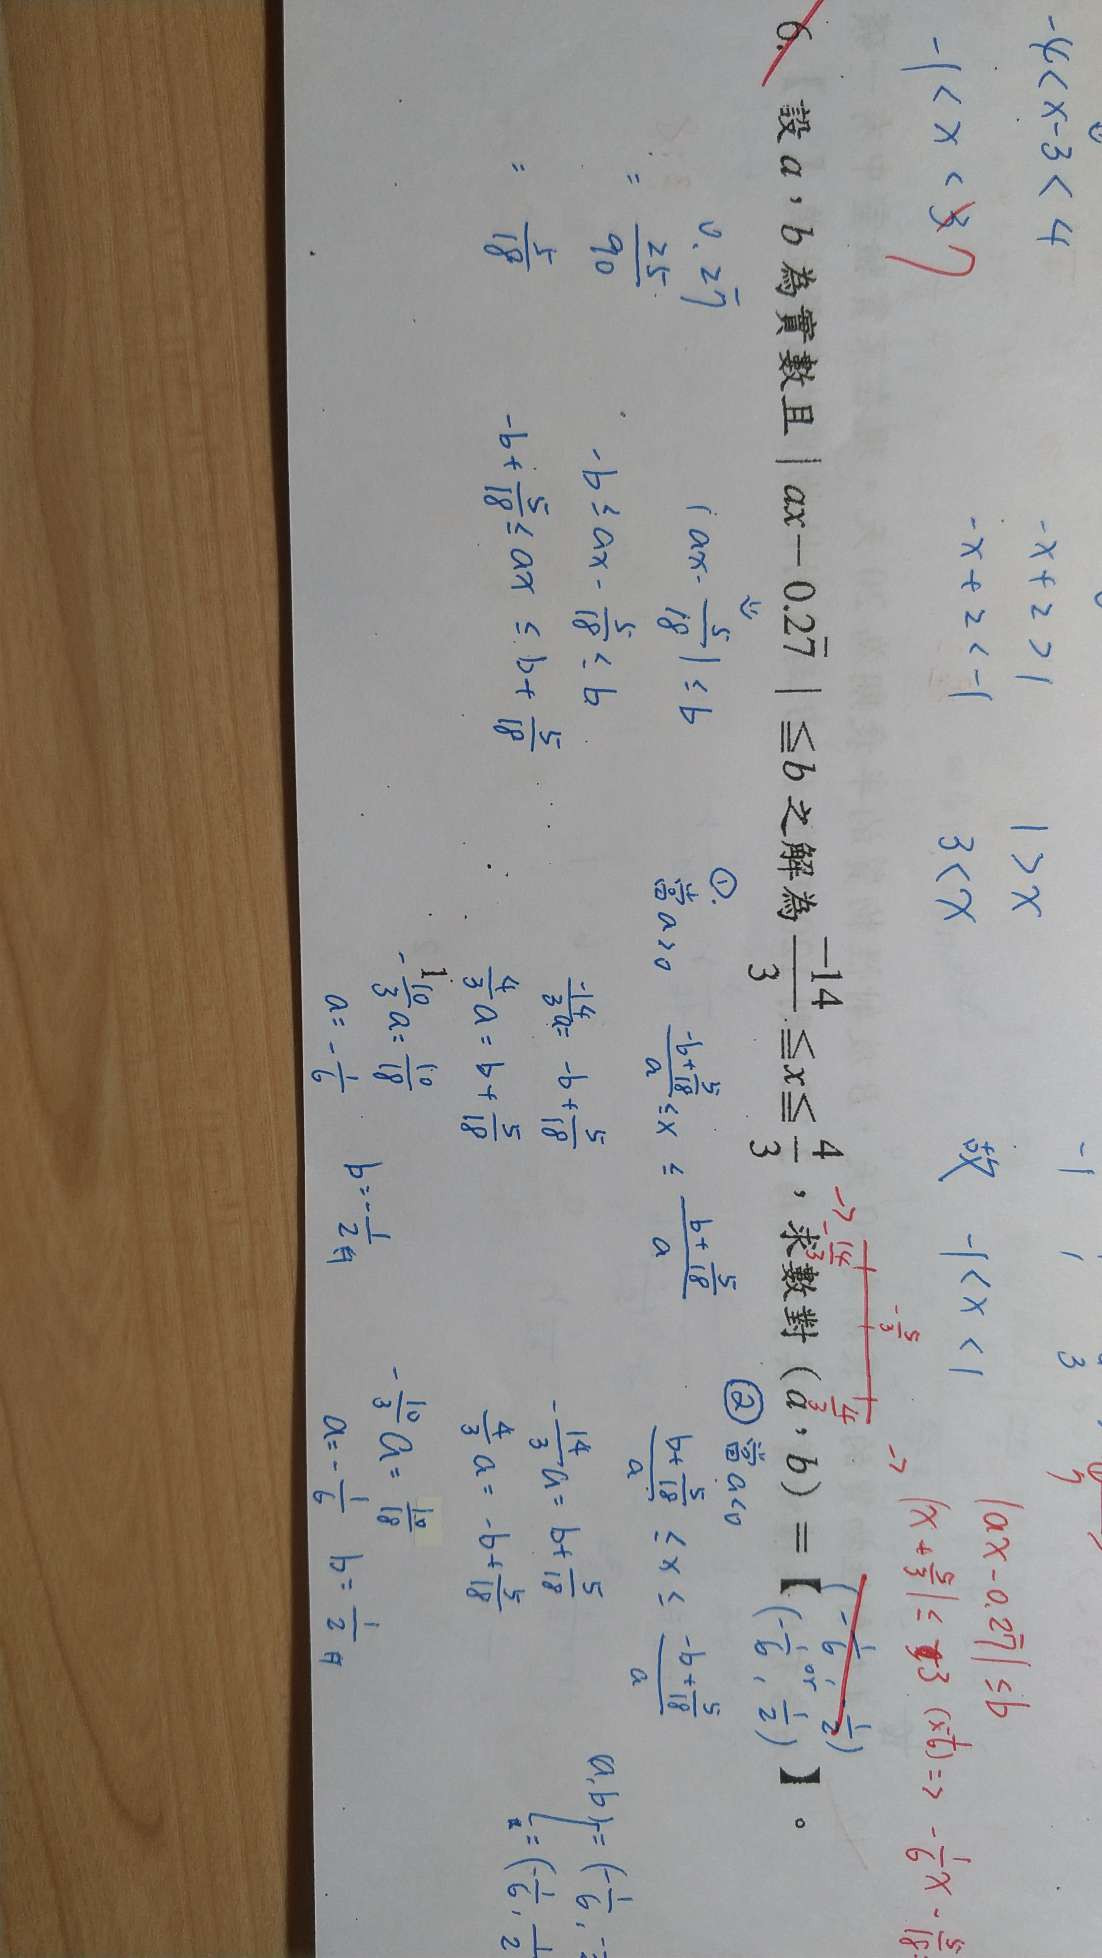 -4<x-3<4
-1<x<37
-x+2>1
-x+2<-1
1>x
3<x
故 -1<x<1
6. 設a,b為實數且|ax-0.2\overline{7}|≤b之解為\frac{-14}{3}≤x≤\frac{4}{3},求數對(a,b)=【(-\frac{1}{6},-\frac{1}{2}) or (-\frac{1}{6},\frac{1}{2})】。
→ -\frac{14}{3} -\frac{5}{3} \frac{4}{3}
|ax-0.2\overline{7}|≤b
→ |x+\frac{5}{3}|≤3 (x-\frac{1}{6}) => -\frac{1}{6}x-\frac{5}{18}
0.2\overline{7}
=\frac{25}{90}
=\frac{5}{18}
|ax-\frac{5}{18}|≤b
-b≤ax-\frac{5}{18}≤b
-b+\frac{5}{18}≤ax≤b+\frac{5}{18}
①.當a>0 \frac{-b+\frac{5}{18}}{a}≤x≤\frac{b+\frac{5}{18}}{a}
\frac{-14}{3}a=-b+\frac{5}{18}
\frac{4}{3}a=b+\frac{5}{18}
-\frac{10}{3}a=\frac{10}{18}
a=-\frac{1}{6} b=-\frac{1}{2}
②當a<0
\frac{b+\frac{5}{18}}{a}≤x≤\frac{-b+\frac{5}{18}}{a}
-\frac{14}{3}a=b+\frac{5}{18}
\frac{4}{3}a=-b+\frac{5}{18}
-\frac{10}{3}a=\frac{10}{18}
a=-\frac{1}{6} b=\frac{1}{2}
a,b)=(-\frac{1}{6},-
=(-\frac{1}{6},\frac{1}{2}